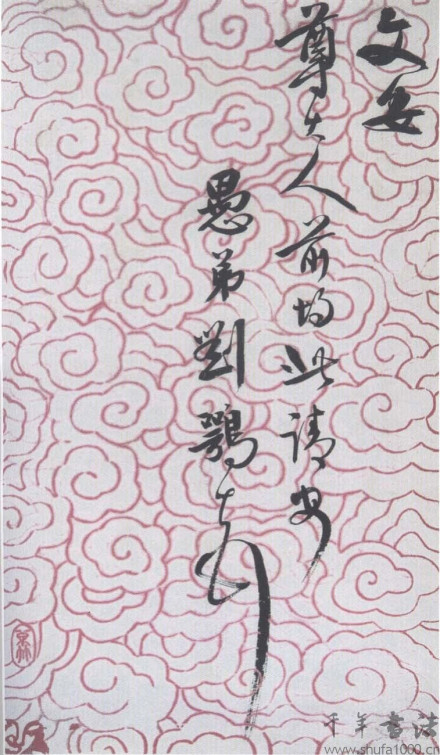 文安
尊大人前均此請安
愚弟劉鶚頓
千年書法
www.shufa1000.cn